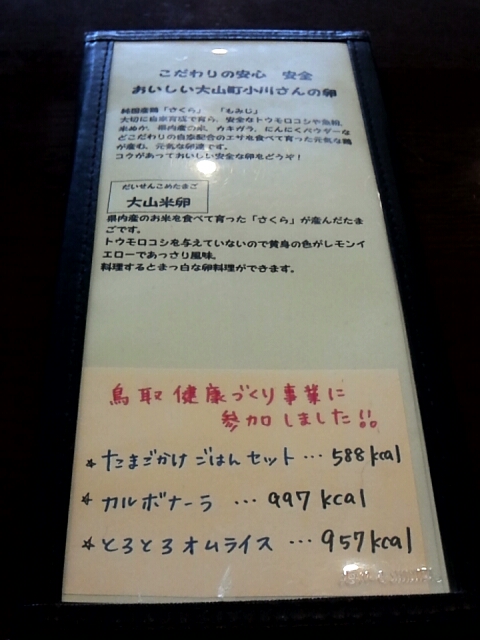 こだわりの安心 安全
おいしい大山町小川さんの卵
純国産鶏「さくら」 「もみじ」
大切に自家育成で育ち、安全なトウモロコシや魚粉、
米ぬか、県内産の米、カキガラ、にんにくパウダーな
どこだわりの自家配合のエサを食べて育った元気な鶏
が産む、元気な卵達です。
コクがあっておいしい安全な卵をどうぞ!
だいせんこめたまご
大山米卵
県内産のお米を食べて育った「さくら」が産んだたま
ごです。
トウモロコシを与えていないので黄身の色がレモンイ
エローであっさり風味。
料理するとまっ白な卵料理ができます。
鳥取健康づくり事業に
参加しました!!
☆たまごかけごはんセット…588kcal
☆カルボナーラ …997kcal
☆とろとろオムライス…957kcal